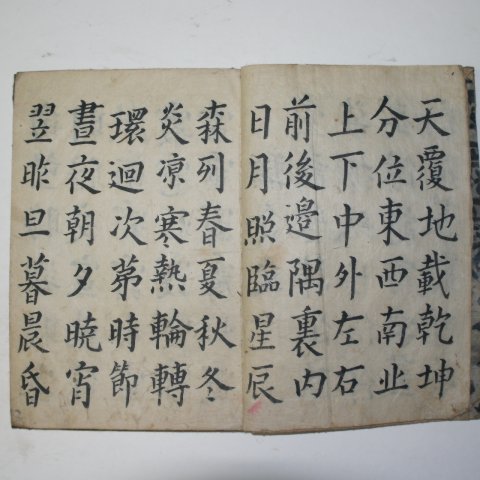 天覆地載乾坤
分位東西南北
上下中外左右
前後邊隅裏内
日月照臨星辰
森列春夏秋冬
炎凉寒熱輪轉
環迴次苐時節
晝夜朝夕曉宵
翌昨旦暮晨昏